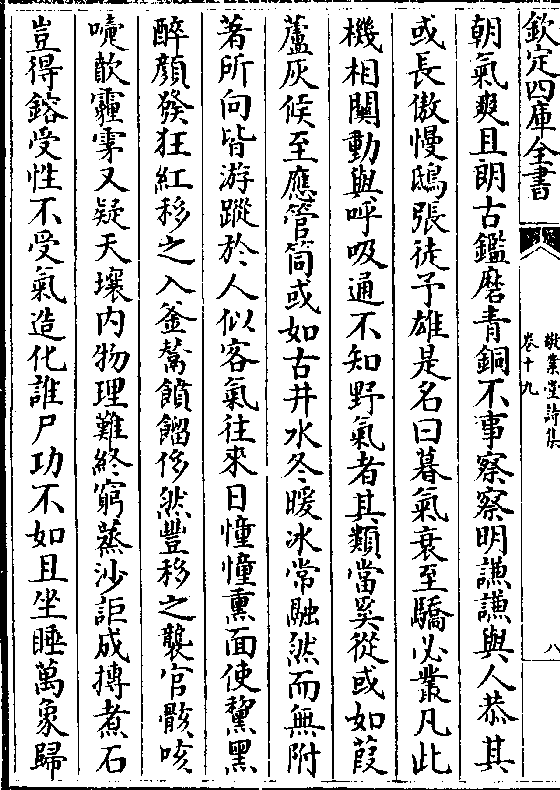 欽定四庫全書
敬業堂詩集
卷十九
八
朝氣爽且朗古鑑磨青銅不事察察明謙謙與人恭其
或長傲慢鴟張徒予雄是名曰暮氣衰至驕必叢凡此
機相闗動與呼吸通不知野氣者其類當奚從或如葭
蘆灰候至應管筒或如古井水冬暖冰常融然而無附
著所向皆游蹤於人似客氣往來日憧憧熏面使黧黑
醉顔發狂紅移之入釜鬵饋餾侈然豐移之襲官骸咳
嚏歊霾雺又疑天壤内物理難終窮蒸沙詎成摶煮石
豈得鎔受性不受氣造化誰尸功不如且坐睡萬象歸